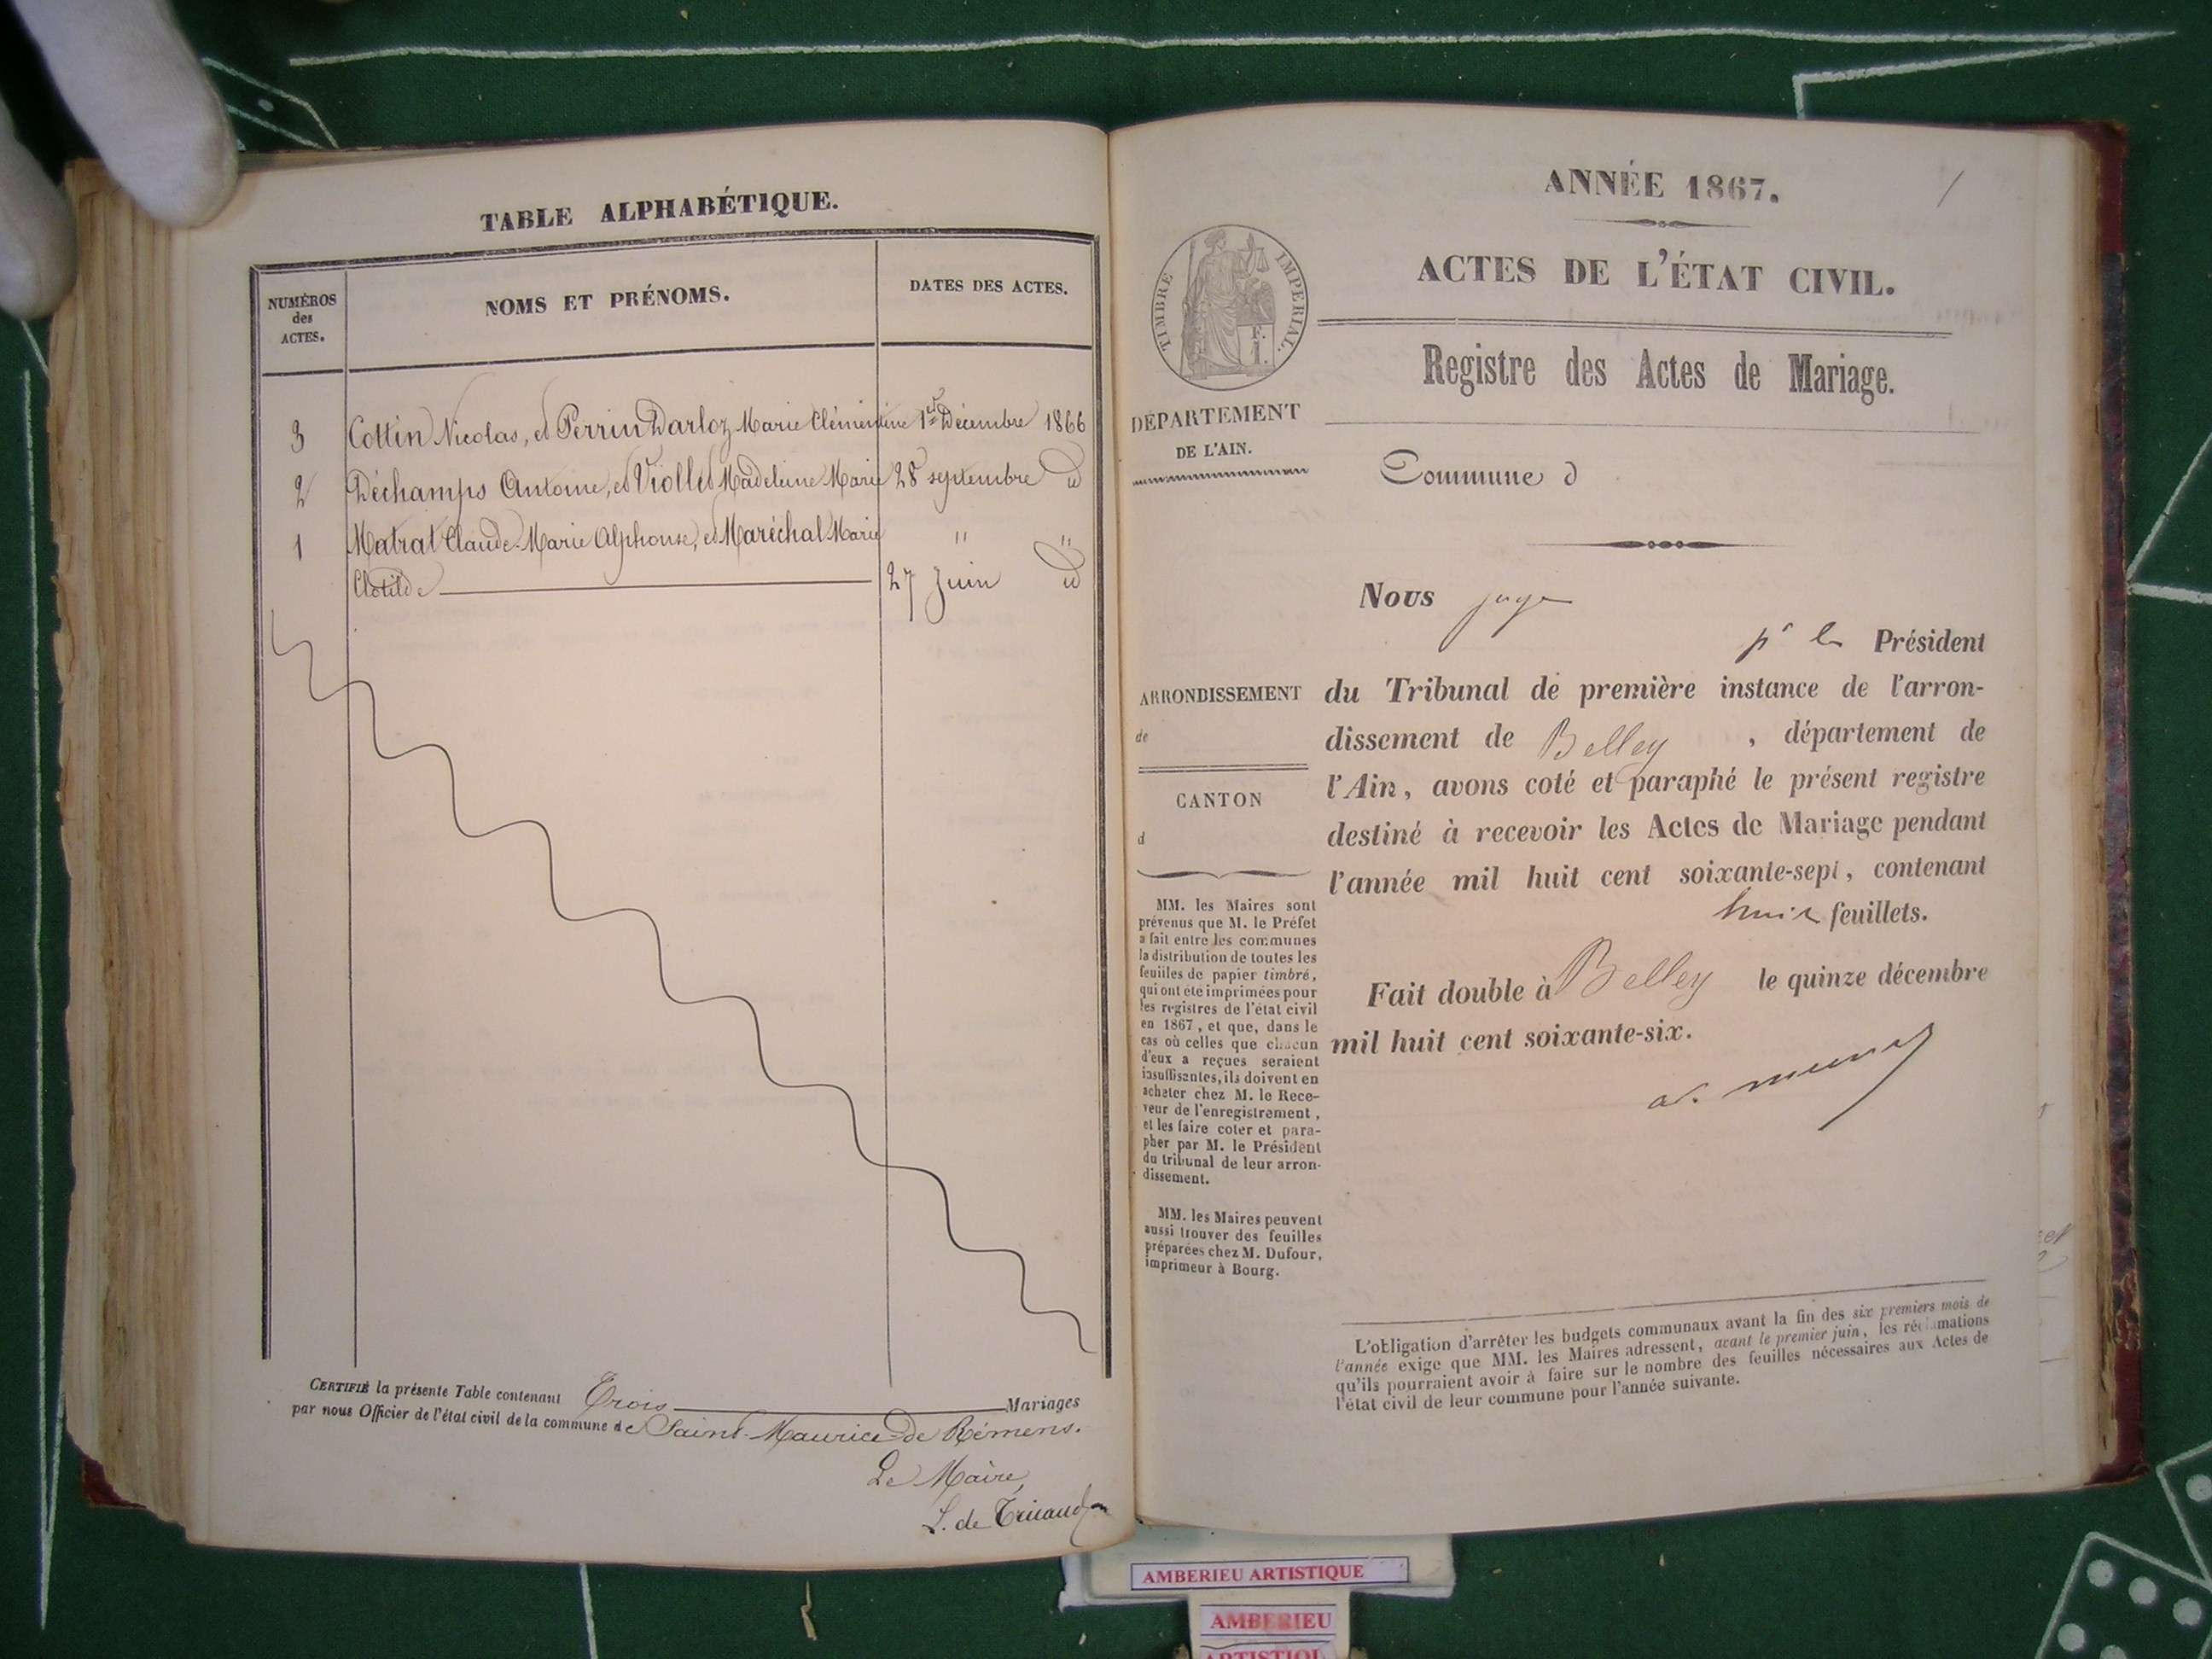 TABLE ALPHABÉTIQUE.
NUMÉROS des ACTES.
NOMS ET PRÉNOMS.
DATES DES ACTES.
3 Cottin Nicolas, et Perrin Darloz Marie Clémentine 1er Décembre 1866
2 Déchamps Antoine, et Viollet Madeleine Marie 28 septembre id
1 Matrat Claude-Marie Alphonse, et Maréchal Marie " "
Clotilde 27 Juin id
CERTIFIÉ la présente Table contenant Trois Mariages
par nous Officier de l'état civil de la commune de Saint-Maurice-de Rémens.
Le Maire,
L. de Tricaud
ANNÉE 1867.
1
ACTES DE L'ÉTAT CIVIL.
TIMBRE IMPERIAL.
F.
1.
Registre des Actes de Mariage.
DÉPARTEMENT
DE L'AIN.
Commune d
Nous juge
pr le Président
ARRONDISSEMENT
de
CANTON
d
du Tribunal de première instance de l'arron-
dissement de Belley , département de
l'Ain, avons coté et paraphé le présent registre
destiné à recevoir les Actes de Mariage pendant
l'année mil huit cent soixante-sept, contenant
huit feuillets.
Fait double à Belley le quinze décembre
mil huit cent soixante-six.
MM. les Maires sont
prévenus que M. le Préfet
a fait entre les communes
la distribution de toutes les
feuilles de papier timbré,
qui ont été imprimées pour
les registres de l'état civil
en 1867, et que, dans le
cas où celles que chacun
d'eux a reçues seraient
insuffisantes, ils doivent en
acheter chez M. le Rece-
veur de l'enregistrement,
et les faire coter et para-
pher par M. le Président
du tribunal de leur arron-
dissement.
MM. les Maires peuvent
aussi trouver des feuilles
préparées chez M. Dufour,
imprimeur à Bourg.
L'obligation d'arrêter les budgets communaux avant la fin des six premiers mois de
l'année exige que MM. les Maires adressent, avant le premier juin, les réclamations
qu'ils pourraient avoir à faire sur le nombre des feuilles nécessaires aux Actes de
l'état civil de leur commune pour l'année suivante.
AMBERIEU ARTISTIQUE
AMBERIEU